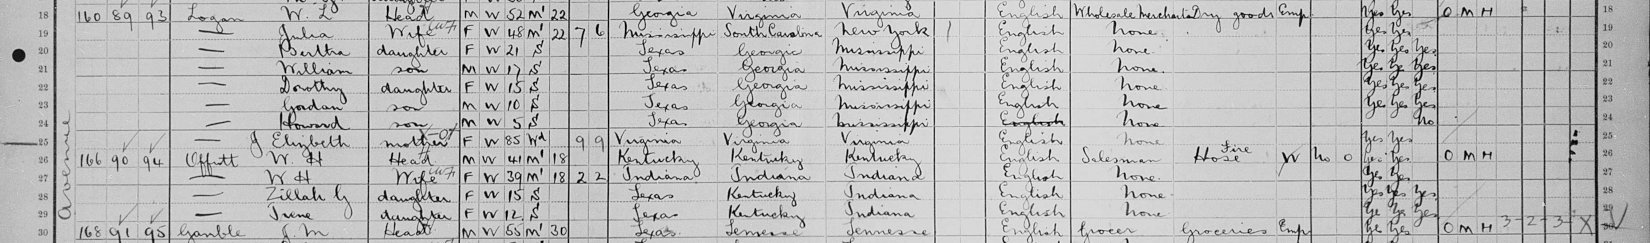 18 160 89 93 Logan W. L Head M W 52 M1 22 Georgia Virginia Virginia English Wholesale Merchant Dry goods Emp Yes Yes O M H 18
19 — Julia Wife F W 48 M1 22 7 6 Mississippi South Carolina New York 1 English None Yes Yes 19
20 — Bertha daughter F W 21 S Texas Georgia Mississippi English None Yes Yes Yes 20
21 — William son M W 17 S Texas Georgia Mississippi English None. Yes Yes Yes 21
22 — Dorothy daughter F W 15 S Texas Georgia Mississippi English None Yes Yes Yes 22
23 — Gordan son M W 10 S Texas Georgia Mississippi English None Yes Yes Yes 23
24 — Howard son M W 5 S Texas Georgia Mississippi English None No 24
25 — J Elizabeth mother F W 85 Wd 9 9 Virginia Virginia Virginia English None Yes Yes 25
26 166 90 94 Offutt W. H Head M W 41 M1 18 Kentucky Kentucky Kentucky English Salesman Fire Hose W No 0 Yes Yes O M H 26
27 — W H Wife F W 39 M1 18 2 2 Indiana Indiana Indiana English None. Yes Yes 27
28 — Zillah G daughter F W 15 S Texas Kentucky Indiana English None Yes Yes Yes 28
29 — Irene daughter F W 12 S Texas Kentucky Indiana English None Yes Yes Yes 29
30 168 91 95 Gamble J. M Head M W 55 M1 30 Texas Tennesse Tennesse English Grocer Groceries Emp Yes Yes O M H 3-2-3-X 30
Avenue